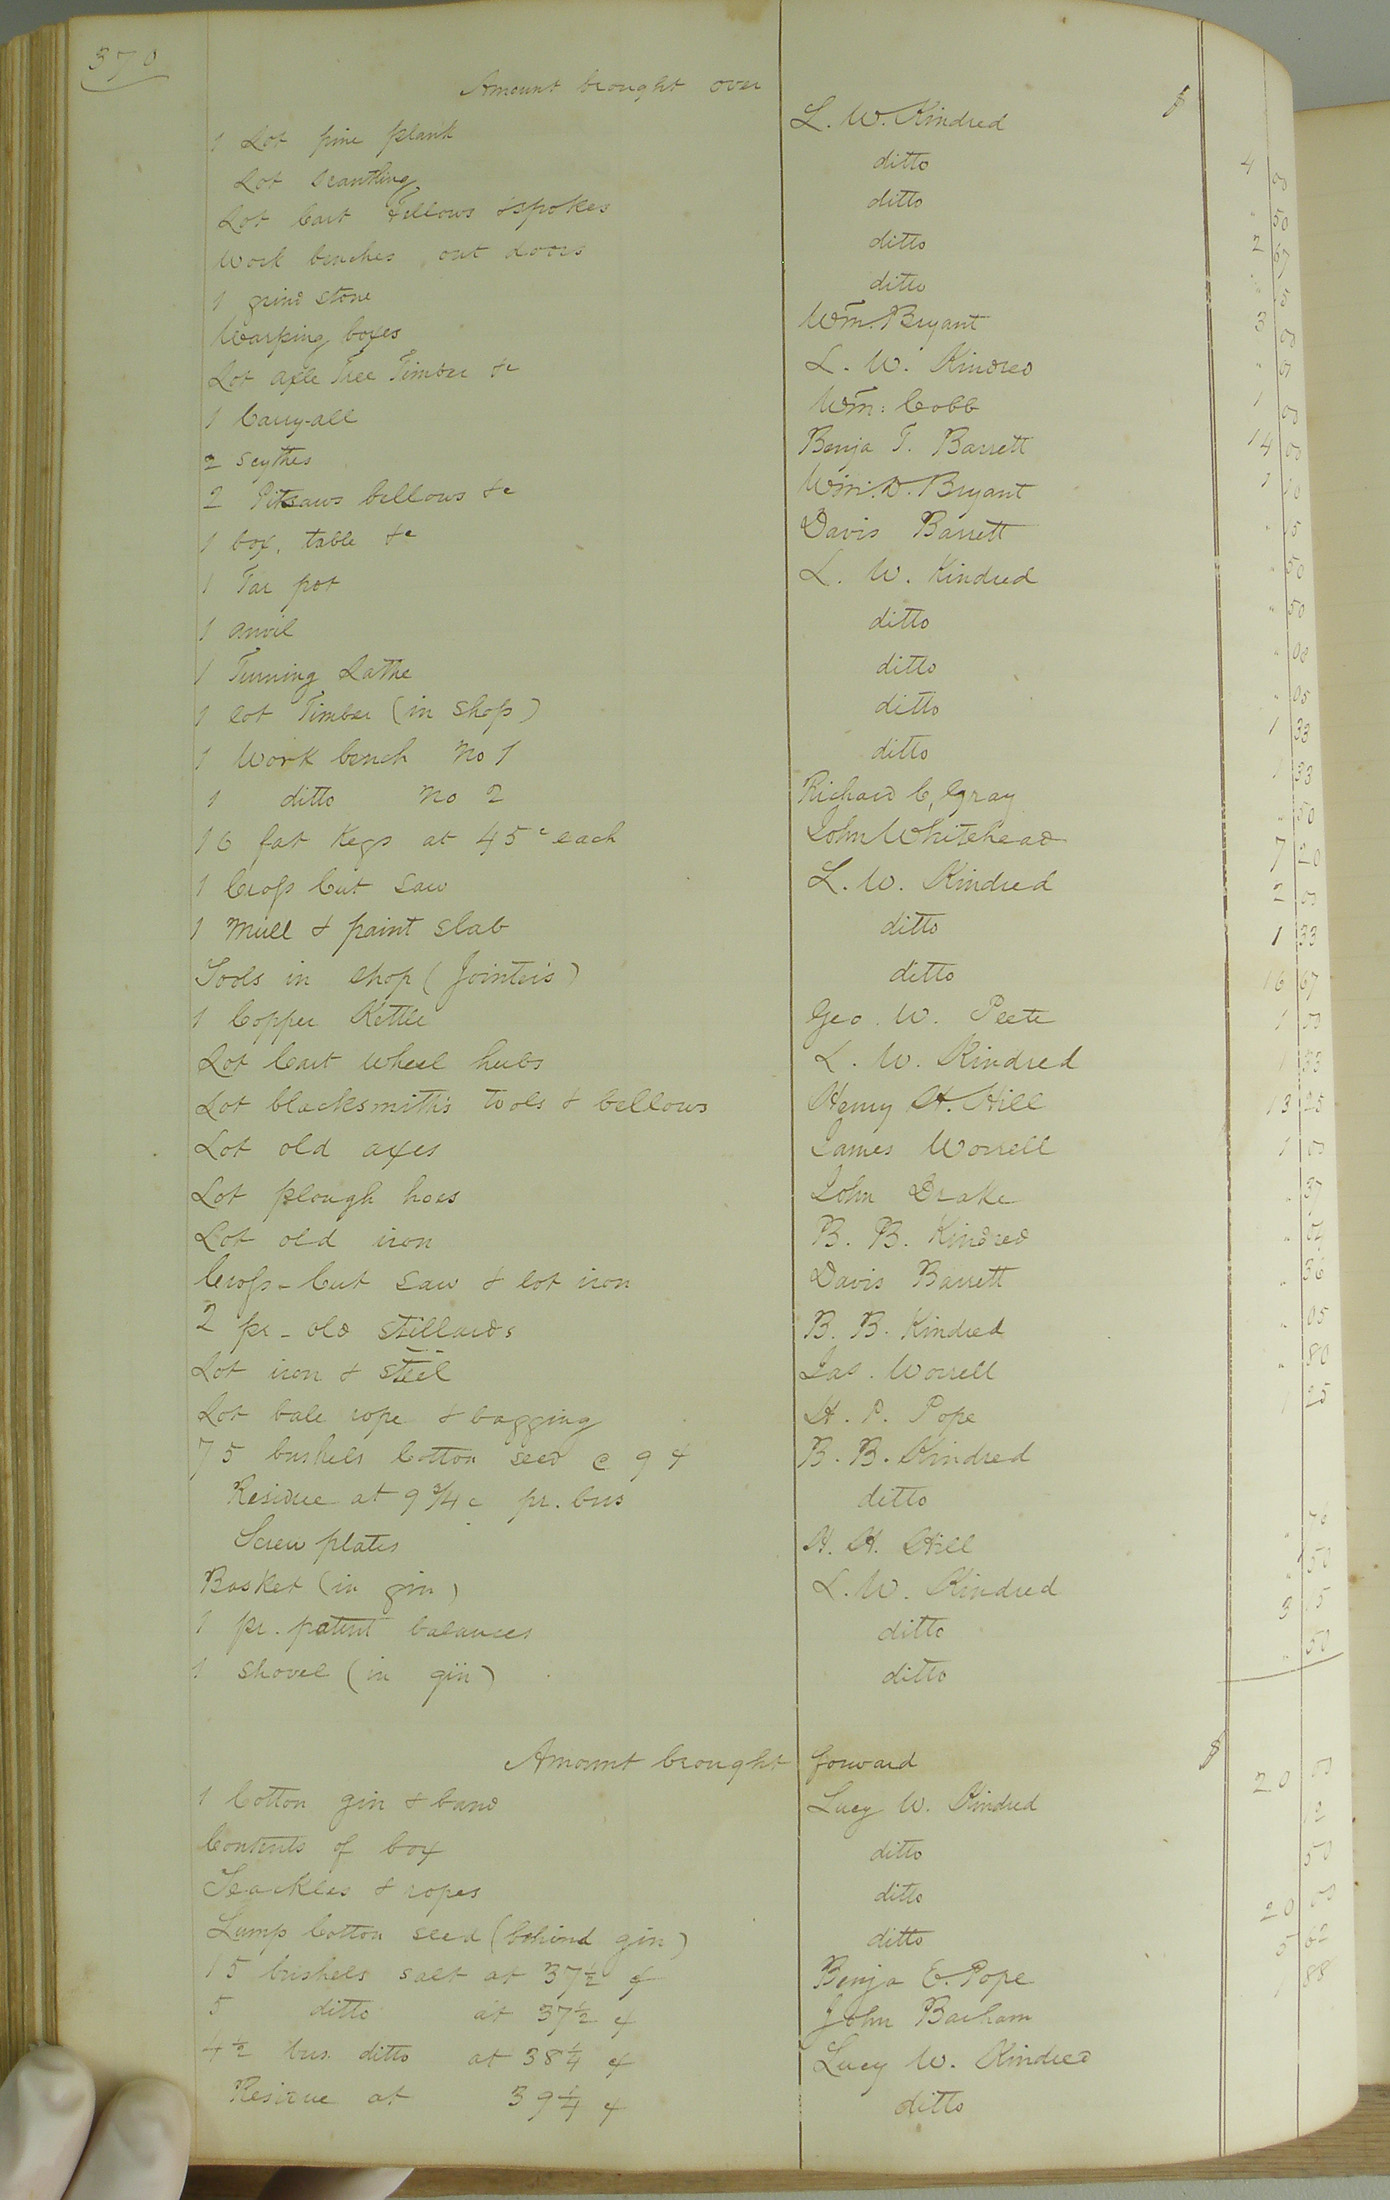 370
Amount brought over $
1 Lot pine plank L. W. Kindred 4 00
Lot Scantling ditto " 50
Lot Cart Fellows & spokes ditto 2 67
Work benches out doors ditto " 5
1 grind stone ditto 3 00
Warping boxes Wm. Bryant "
Lot axle Tree Timber &c L. W. Kindred 1 00
1 Carry-all Wm: Cobb 14 00
2 Scythes Benja T. Barrett 1 10
2 Pitsaws bellows &c Wm. D. Bryant " 15
1 box, table &c Davis Barrett " 50
1 Tar pot L. W. Kindred " 50
1 anvil ditto " 00
1 Turning Lathe ditto " 05
1 lot Timber (in Shop) ditto 1 33
1 Work bench No 1 ditto 1 33
1 ditto No 2 Richard C. Gray " 50
16 fat Kegs at 45c each John Whitehead 7 20
1 Cross Cut Saw L. W. Kindred 2 00
1 Mull & paint Slab ditto 1 33
Tools in Shop (Jointers) ditto 16 67
1 Copper Kettle Geo. W. Peete 1 50
Lot Cart Wheel hubs L. W. Kindred 1 33
Lot blacksmith's tools & bellows Henry H. Hill 13 25
Lot old axes James Worrell 1 00
Lot plough hoes John Drake " 37
Lot old iron B. B. Kindred " 04
Cross-Cut Saw & lot iron Davis Barrett " 36
2 pr - old Stillards B. B. Kindred " 05
Lot iron & Steel Jas. Worrell " 80
Lot bale rope & bagging H. P. Pope 1 25
75 bushels Cotton seed @ 9 ¢ B. B. Kindred
Residue at 9 3/4 c pr. bus ditto
Screw plates H. H. Hill " 76
Basket (in gin) L. W. Kindred " 50
1 pr. patent balances ditto 3 5
1 Shovel (in gin) ditto " 50
Amount brought forward $
1 Cotton gin & band Lucy W. Kindred 20 00
Contents of box ditto 12
Teackles & ropes ditto 50
Lump Cotton seed (behind gin) ditto 20 00
15 bushels salt at 37 1/2 ¢ Benja E. Pope 5 62
5 ditto at 37 1/2 ¢ John Barham 1 88
4 1/2 bus. ditto at 38 1/4 ¢ Lucy W. Kindred
Residue at 39 1/4 ¢ ditto